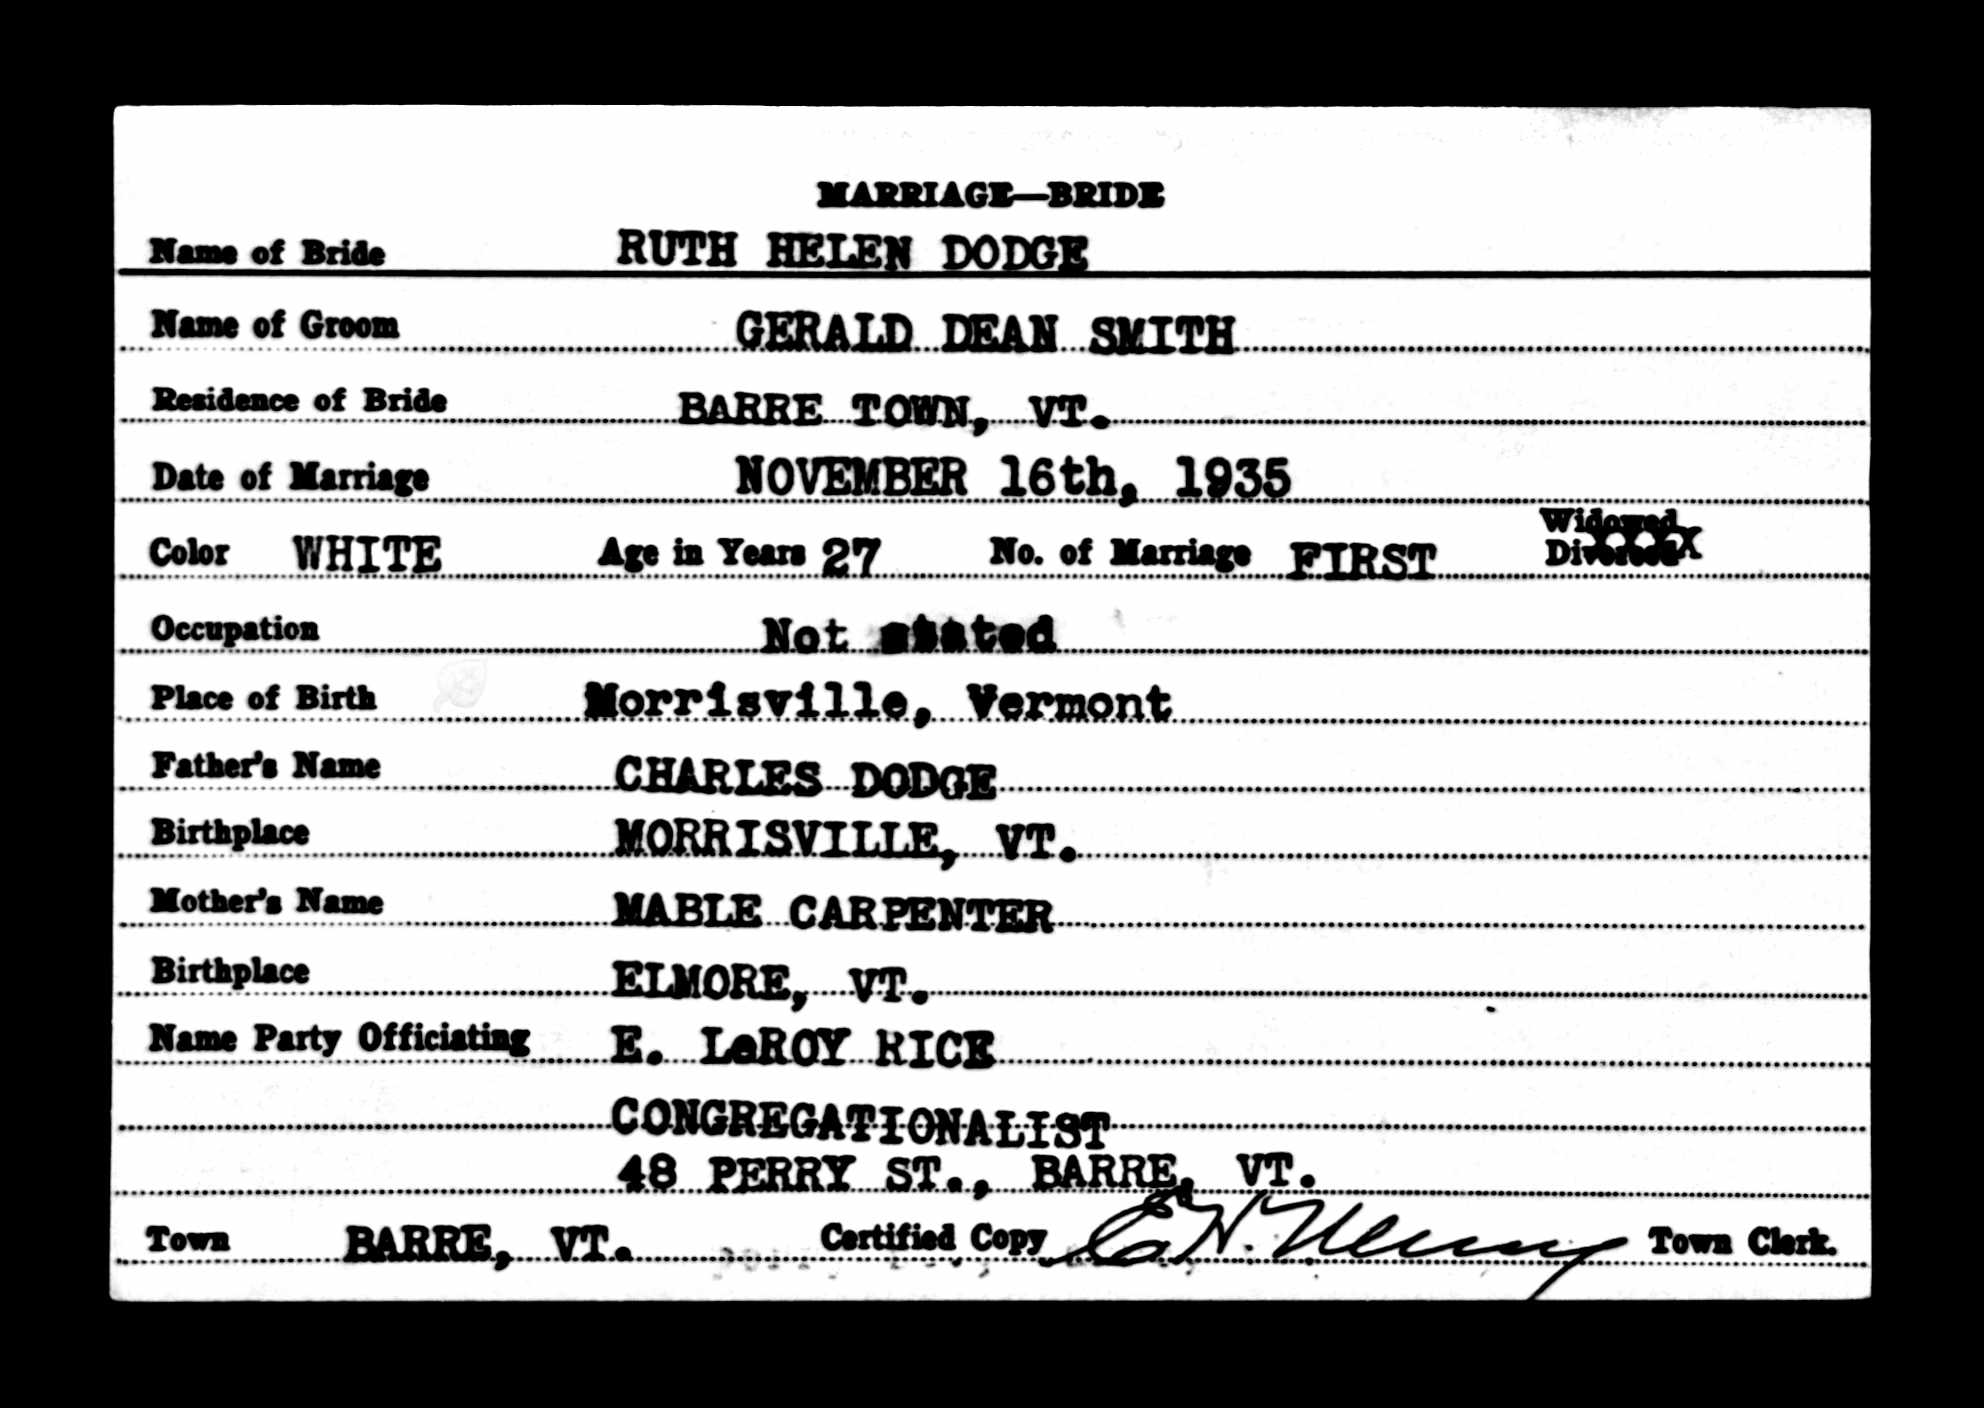 MARRIAGE—BRIDE
Name of Bride RUTH HELEN DODGE
Name of Groom GERALD DEAN SMITH
Residence of Bride BARRE TOWN, VT.
Date of Marriage NOVEMBER 16th, 1935
Color WHITE Age in Years 27 No. of Marriage FIRST Widowed Divorced XXXX
Occupation Not stated
Place of Birth Morrisville, Vermont
Father's Name CHARLES DODGE
Birthplace MORRISVILLE, VT.
Mother's Name MABLE CARPENTER
Birthplace ELMORE, VT.
Name Party Officiating E. LeROY RICE
CONGREGATIONALIST
48 PERRY ST., BARRE, VT.
Town BARRE, VT. Certified Copy E. H. Town Clerk.